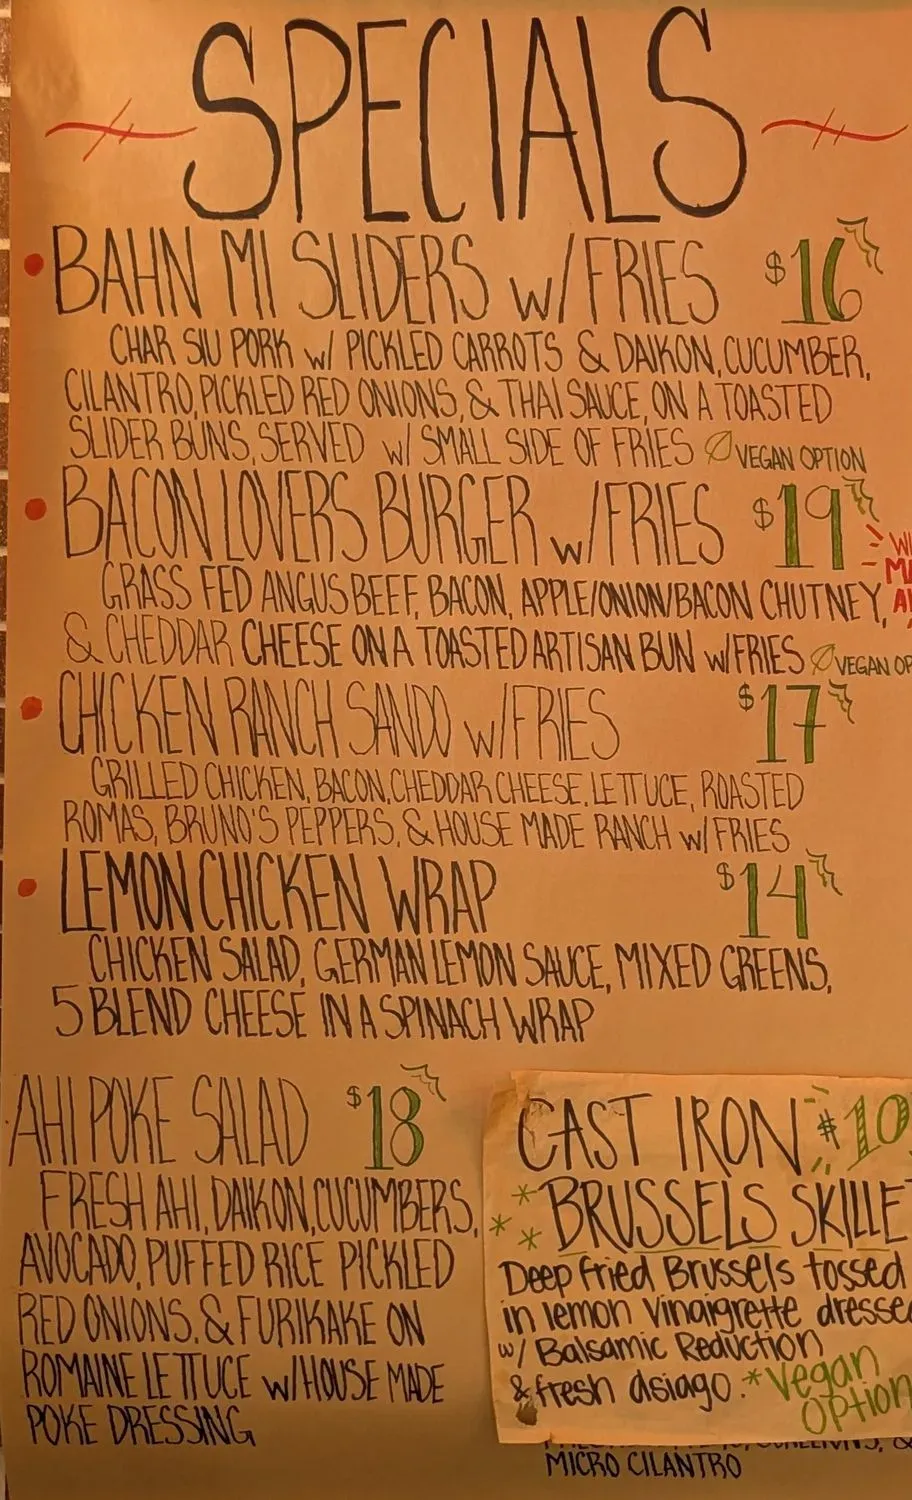 SPECIALS
BAHN MI SLIDERS w/FRIES $16
CHAR SIU PORK w/ PICKLED CARROTS & DAIKON, CUCUMBER,
CILANTRO, PICKLED RED ONIONS, & THAI SAUCE, ON A TOASTED
SLIDER BUNS, SERVED w/ SMALL SIDE OF FRIES VEGAN OPTION
BACON LOVERS BURGER w/FRIES $19
GRASS FED ANGUS BEEF, BACON, APPLE/ONION/BACON CHUTNEY,
& CHEDDAR CHEESE ON A TOASTED ARTISAN BUN w/FRIES VEGAN OP
CHICKEN RANCH SANDO w/FRIES $17
GRILLED CHICKEN, BACON, CHEDDAR CHEESE, LETTUCE, ROASTED
ROMAS, BRUNO'S PEPPERS, & HOUSE MADE RANCH w/ FRIES
LEMON CHICKEN WRAP $14
CHICKEN SALAD, GERMAN LEMON SAUCE, MIXED GREENS,
5 BLEND CHEESE IN A SPINACH WRAP
AHI POKE SALAD $18
FRESH AHI, DAIKON, CUCUMBERS,
AVOCADO, PUFFED RICE PICKLED
RED ONIONS, & FURIKAKE ON
ROMAINE LETTUCE w/HOUSE MADE
POKE DRESSING
CAST IRON $10
BRUSSELS SKILLET
Deep fried Brussels tossed
in lemon Vinaigrette dressed
w/ Balsamic Reduction
& fresh asiago. *Vegan
OPtion
MICRO CILANTRO